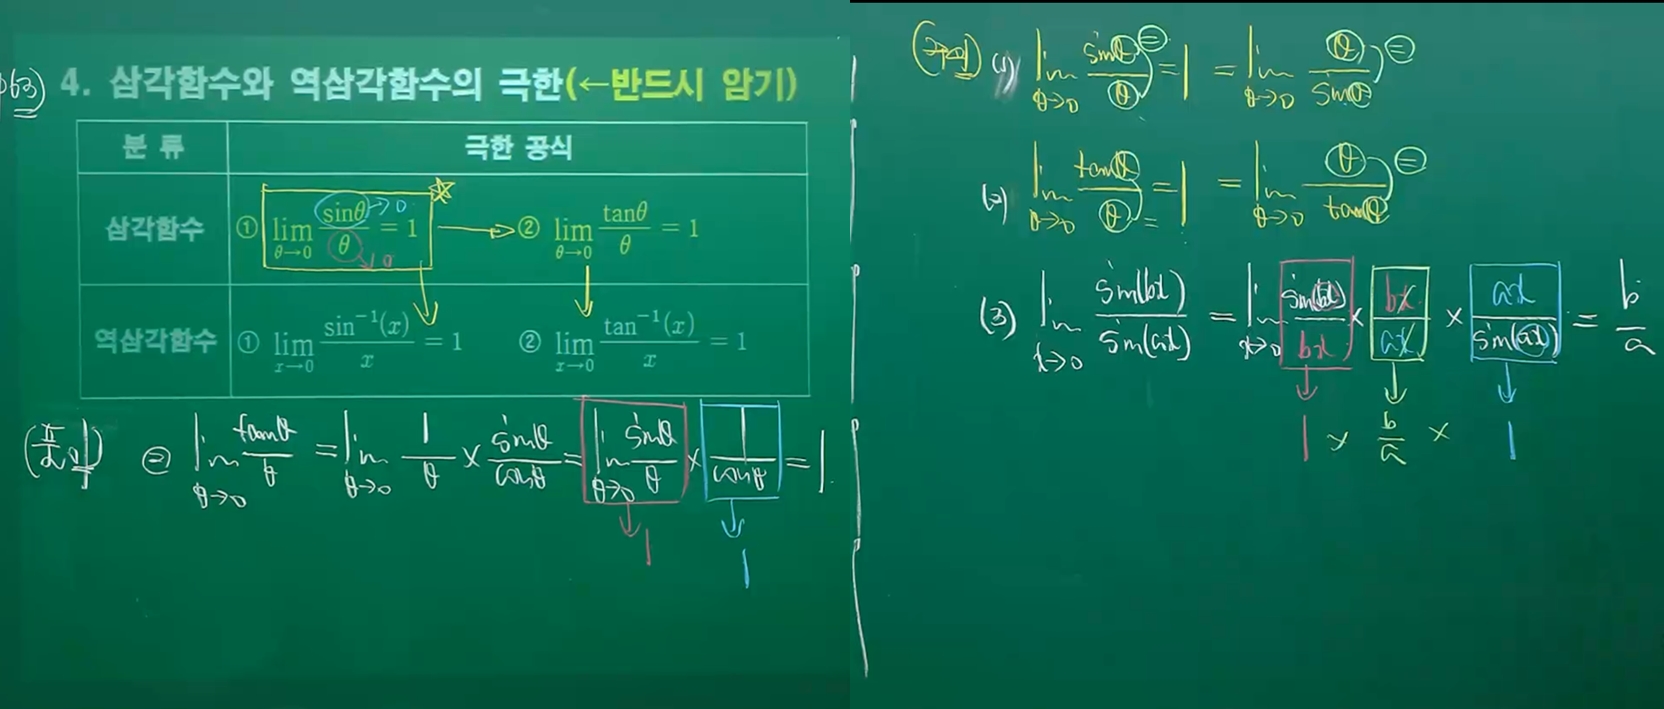 p63) 4. 삼각함수와 역삼각함수의 극한(←반드시 암기)
분 류 극한 공식
삼각함수 ① lim θ→0 sinθ/θ = 1 ② lim θ→0 tanθ/θ = 1
→0
→0
역삼각함수 ① lim x→0 sin⁻¹(x)/x = 1 ② lim x→0 tan⁻¹(x)/x = 1
② lim θ→0 tanθ/θ = lim θ→0 1/θ × sinθ/cosθ = lim θ→0 sinθ/θ × 1/cosθ = 1
1 1
(1) lim θ→0 sinθ/θ = 1 = lim θ→0 θ/sinθ
(2) lim θ→0 tanθ/θ = 1 = lim θ→0 θ/tanθ
(3) lim x→0 sin(bx)/sin(ax) = lim x→0 sin(bx)/bx × bx/ax × ax/sin(ax) = b/a
1 × b/a × 1